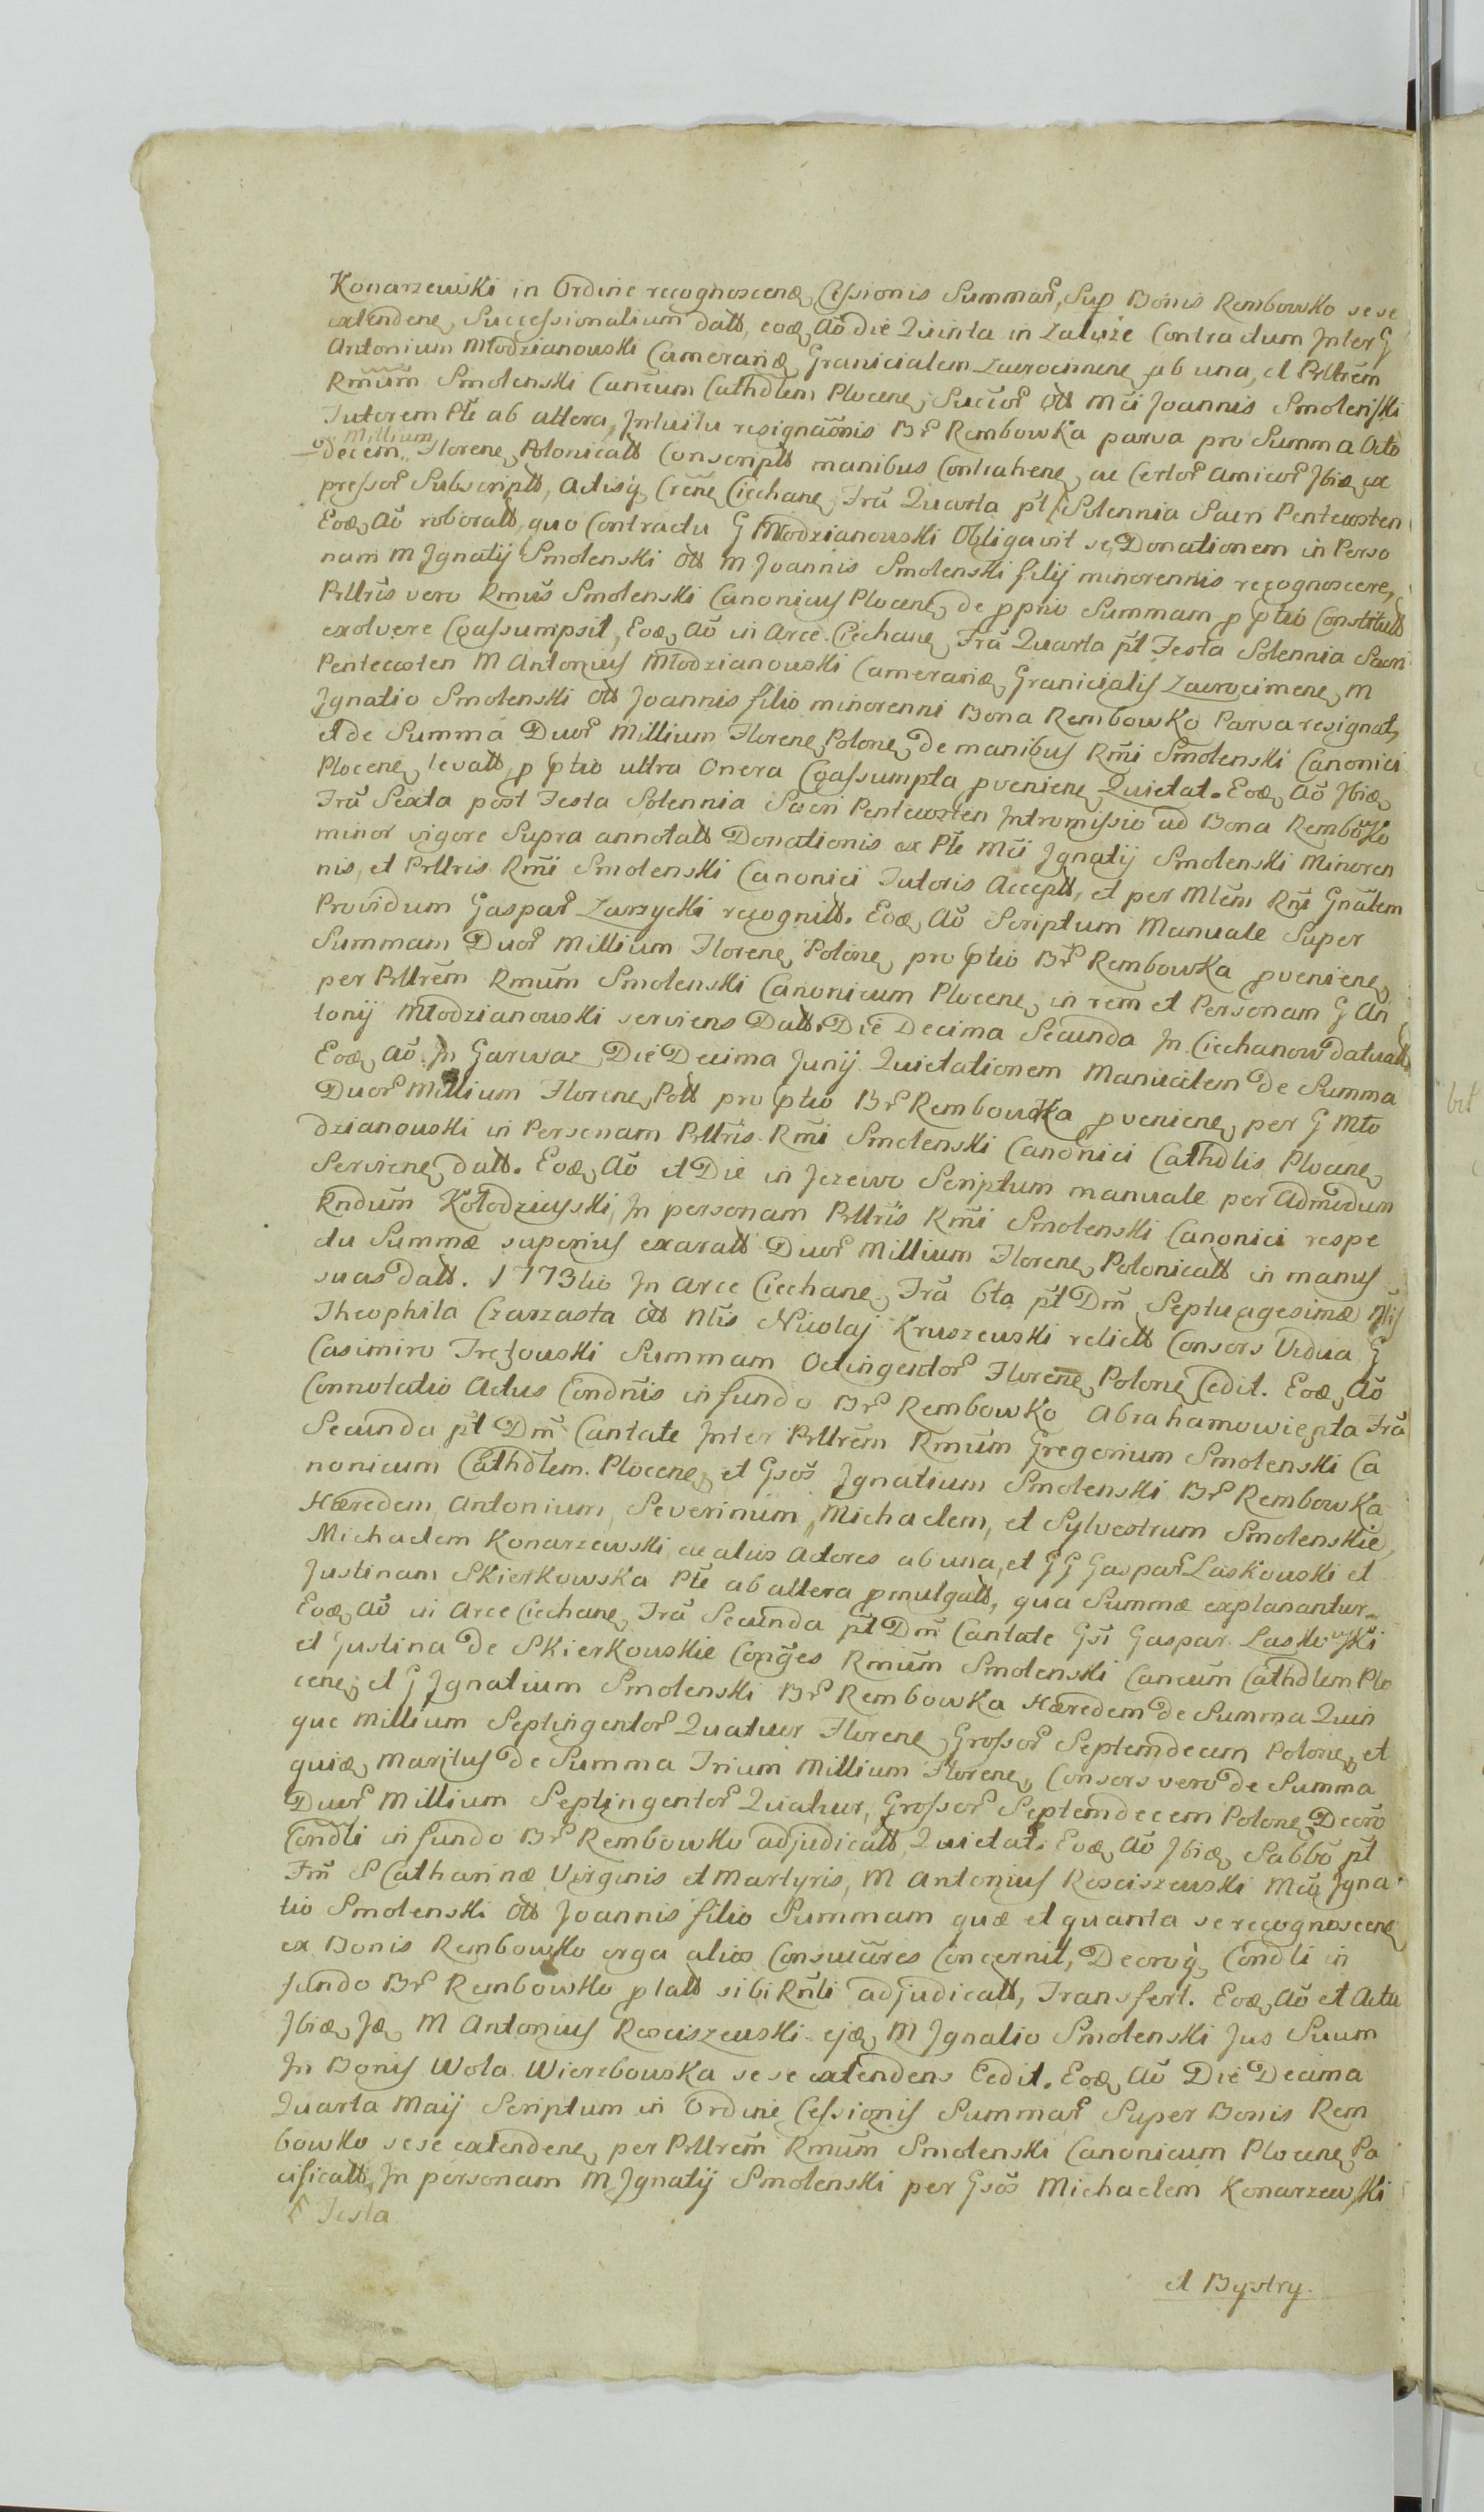 Konarzewski in Ordine recognoscenδ Cessionis Summarȓ, Sup Bonis Rembowko sese
extendeneȩ Successionalium datt, eoδ Ao die Quinta in Załuże Contractum Inter G
Antonium Młodzianowski Camerariδ Granicialem Zacrocimeneȩ ab una, et Prllrem
Rmum Smolenski Cancum Cathdlem Ploceneȩ Succor Ott Mci Joannis Smolenski
Tutorem Pte ab altera, Intuitu resignaonis Br Rembowka parva pro Summa Octo
decem Millium Floreneȩ Polonicatt Conscriptt manibus Contraheneȩ ac Certor Amicor Ibiδ ex
pressor Subscriptt, Actisq Crene Ciechaneȩ Fra Quarta pt Solennia Sacri Pentecosten
Eoδ Ao roboratt, quo Contractu G Młodzianowski Obligavit se, Donationem in Perso
nam M Ignatij Smolenski Ott M Joannis Smolenski filij minorennis recognoscere,
Prllris vero Rmus Smolenski Canonicus Ploceneȩ de pprio Summam p ptio Constitutt
exolvere Coassumpsit, Eoδ Ao in Arce Ciechaneȩ Fra Quarta pt Festa Solennia Sacri
Pentecosten M Antonius Młodzianowski Camerariδ Granicialis Zacrocimeneȩ M
Ignatio Smolenski Ott Joannis filio minorenni Bona Rembowko Parva resignat,
et de Summa Duor Millium Floreneȩ Poloneȩ de manibus Rmi Smolenski Canonici
Ploceneȩ levatt p ptio ultra Onera Coassumpta pvenieneȩ Quietat. Eoδ Ao Ibiδ
Fra Sexta post Festa Solennia Sacri Pentecosten Intromissio ad Bona Rembowko
minor vigore Supra annotatt Donationis ex Pte Mci Ignatij Smolenski Minoren
nis, et Prllris Rmi Smolenski Canonici Tutoris Acceptt, et per Mlem Rni Gnalem
Providum Gaspar Zarzycki recognitt. Eoδ Ao Scriptum Manuale Super
Summam Duor Millium Floreneȩ Poloneȩ pro ptio Br Rembowka pvenieneȩ
per Prllrem Rmum Smolenski Canonicum Ploceneȩ in rem et Personam G An
tonij Młodzianowski serviens Datt. Die Decima Secunda In Ciechanow datuatt
Eoδ Ao. In Garwaz Die Decima Junij Quietationem Manualem de Summa
Duor Millium Floreneȩ Pott pro ptio Br Rembowka pvenieneȩ per G Mło
dzianowski in Personam Prllris Rmi Smolenski Canonici Cathdlis Ploceneȩ
Servieneȩ datt. Eoδ Ao et Die in Jezewo Scriptum manuale per Admodum
Rndum Kołodzieyski, In personam Prllris Rmi Smolenski Canonici respe
ctu Summæ superius exaratt Duor Millium Floreneȩ Polonicatt in manus
suas datt. 1773tio In Arce Ciechaneȩ Fra 6ta pt Dm Septuagesimæ Nlis
Theophila Czarzasta Ott Nlis Nicolaj Kruszewski relictt Consors Vidua G
Casimiro Tretowski Summam Octingentor Floreneȩ Poloneȩ Cedit. Eoδ Ao
Connotatio Actus Condnis in fundo Br Rembowko Abrahamowięta Fra
Secunda pt Dm Cantate Inter Prllrem Rmum Gregorium Smolenski Ca
nonicum Cathdlem. Ploceneȩ et Gsos Ignatium Smolenski Br Rembowka
Hæredem, Antonium, Severinum, Michaelem, et Sylvestrum Smolenskie,
Michaelem Konarzewski, ac alios Actores ab una, et GG Gaspar Laskowski et
Justinam Skierkowska Pte ab altera pmulgatt, qua Summæ explanantur.
Eoδ Ao in Arce Ciechaneȩ Fra Secunda pt Dm Cantate Gsi Gaspar Laskowski
et Justina de Skierkowskie Conges Rmum Smolenski Cancum Cathdlem Plo
ceneȩ et G Ignatium Smolenski Br Rembowka Hæredem de Summa Quin
que Millium Septingentor Quatuor Floreneȩ Grossor Septemdecem Poloneȩ et
quiδ Maritus de Summa Trium Millium Floreneȩ, Consors vero de Summa
Duor Millium Septingentor Quatuor, Grossor Septemdecem Poloneȩ Decro
Condli in fundo Br Rembowko adjudicatt, Quietat. Eoδ Ao Ibiδ Sabbo pt
Fm S Catharinæ Virginis et Martyris, M Antonius Rosciszewski Mco Igna
tio Smolenski Ott Joannis filio Summam quæ et quanta se recognosceneȩ
ex Bonis Rembowko erga alios Consuccres Concernit, Decroq Condli in
fundo Br Rembowko platt sibi Rnli adjudicatt, Transfert. Eoδ Ao et Actu
Ibiδ Iδ M Antonius Rosciszewski ejδ M Ignatio Smolenski Jus Suum
In Bonis Wola Wierzbowska sese extendens Cedit. Eoδ Ao Die Decima
Quarta Maij Scriptum in Ordine Cessionis Summar Super Bonis Rem
bowko sese extendeneȩ per Prllrem Rmum Smolenski Canonicum Ploceneȩ Pa
cificatt, In personam M Ignatij Smolenski per Gsos Michaelem Konarzewski
Festa
et Bystry.